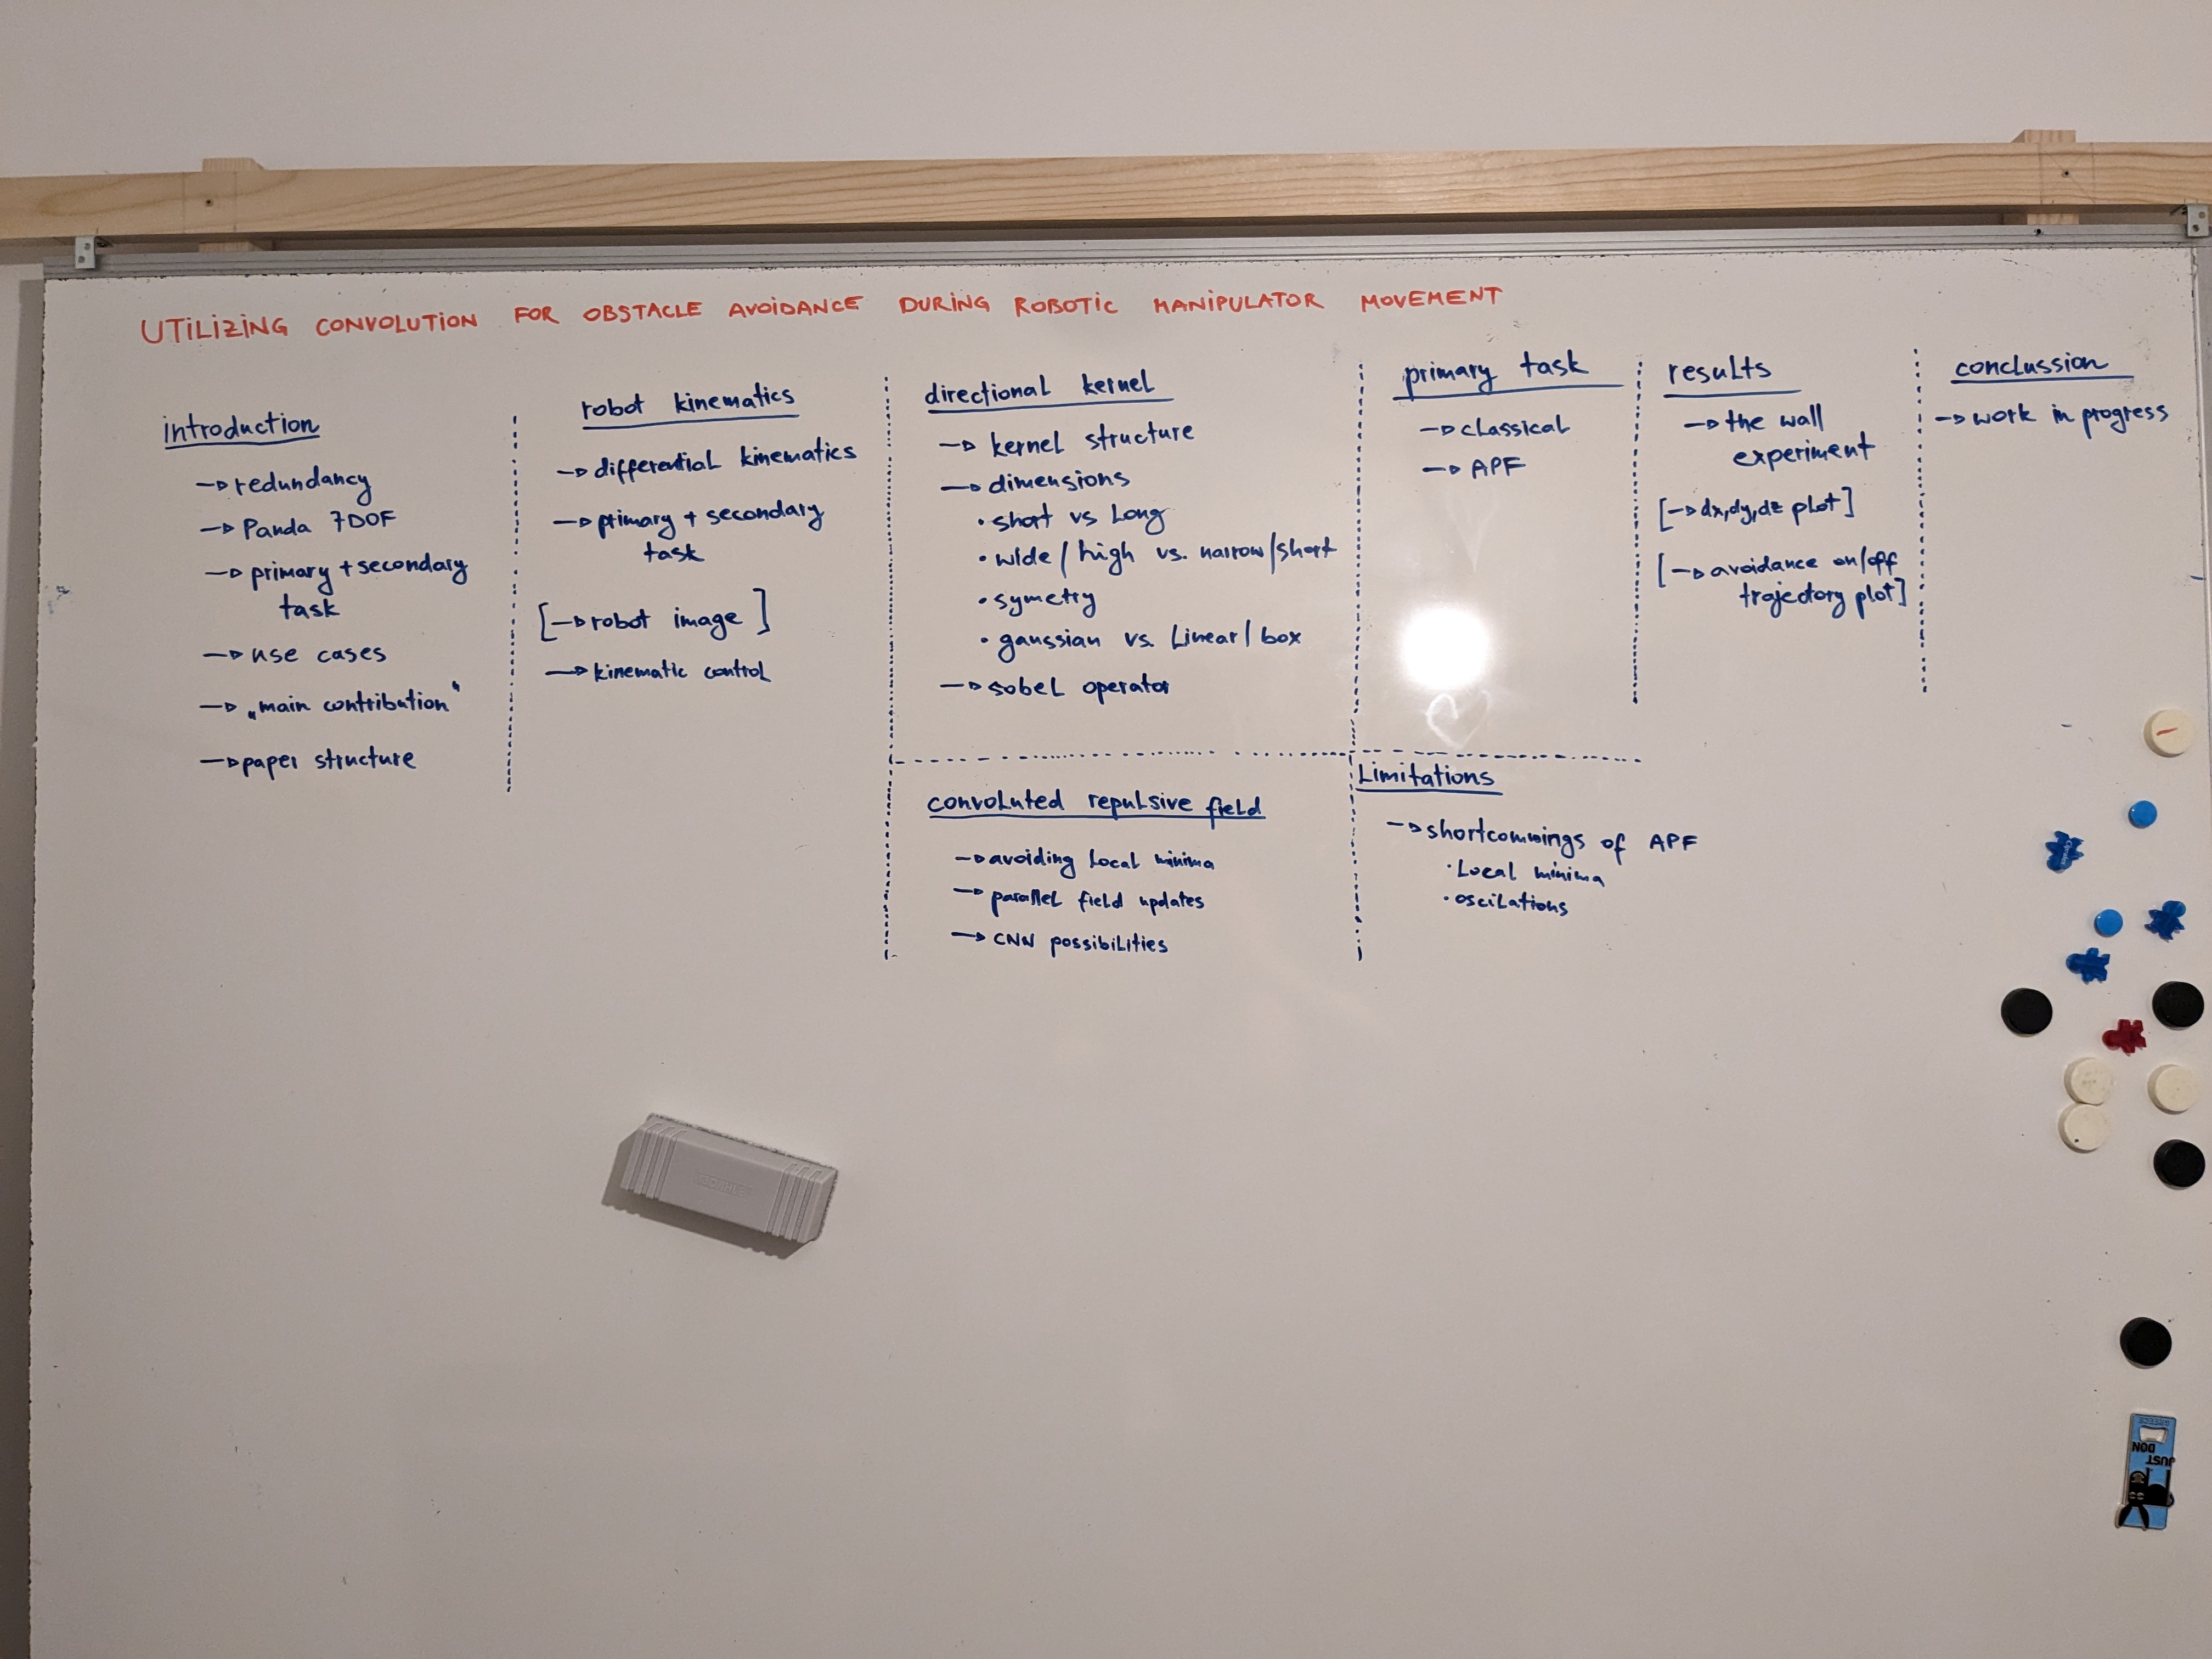 UTILIZING CONVOLUTION FOR OBSTACLE AVOIDANCE DURING ROBOTIC MANIPULATOR MOVEMENT
introduction
→ redundancy
→ Panda 7DOF
→ primary + secondary
task
→ use cases
→ „main contribution“
→ paper structure
robot kinematics
→ differential kinematics
→ primary + secondary
task
[→ robot image]
→ kinematic control
directional kernel
→ kernel structure
→ dimensions
• short vs long
• wide/high vs. narrow/short
• symetry
• gaussian vs. linear/box
→ sobel operator
convoluted repulsive field
→ avoiding local minima
→ parallel field updates
→ CNN possibilities
primary task
→ classical
→ APF
Limitations
→ shortcommings of APF
• Local minima
• oscilations
results
→ the wall
experiment
[→ dx,dy,dz plot]
[→ avoidance on/off
trajectory plot]
conclussion
→ work in progress
GREECE
JUST
DON